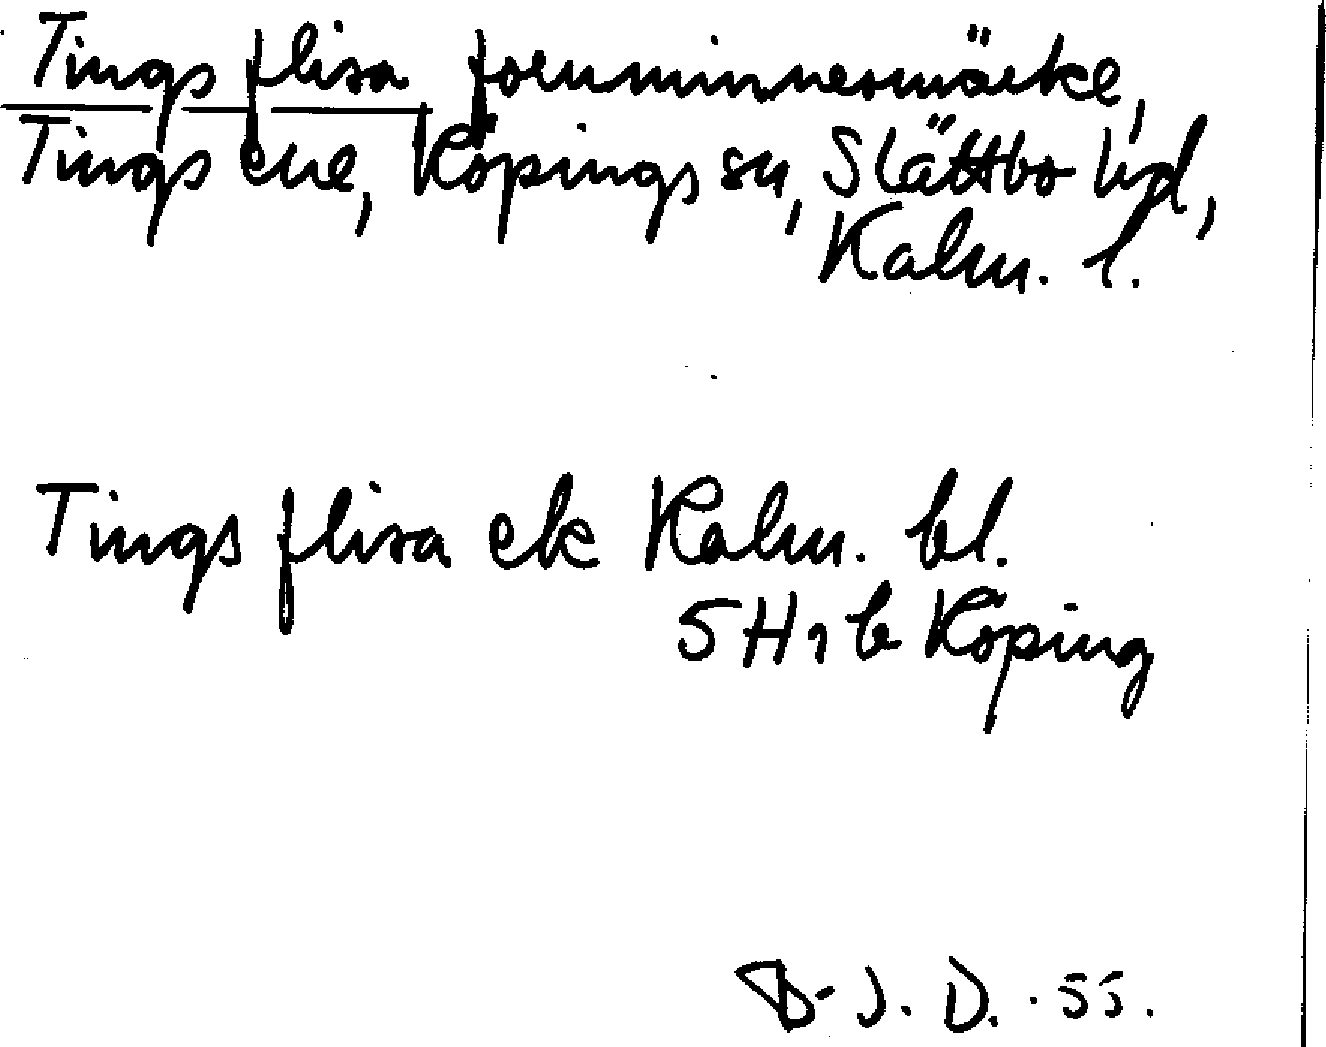 Tings flisa fornminnesmärke,
Tings ene, Köpings sn, Slättbo hd,
Kalm. l.
Tings flisa ek Kalm. bl.
5 H 1 b Köping
B-J. D. -55.